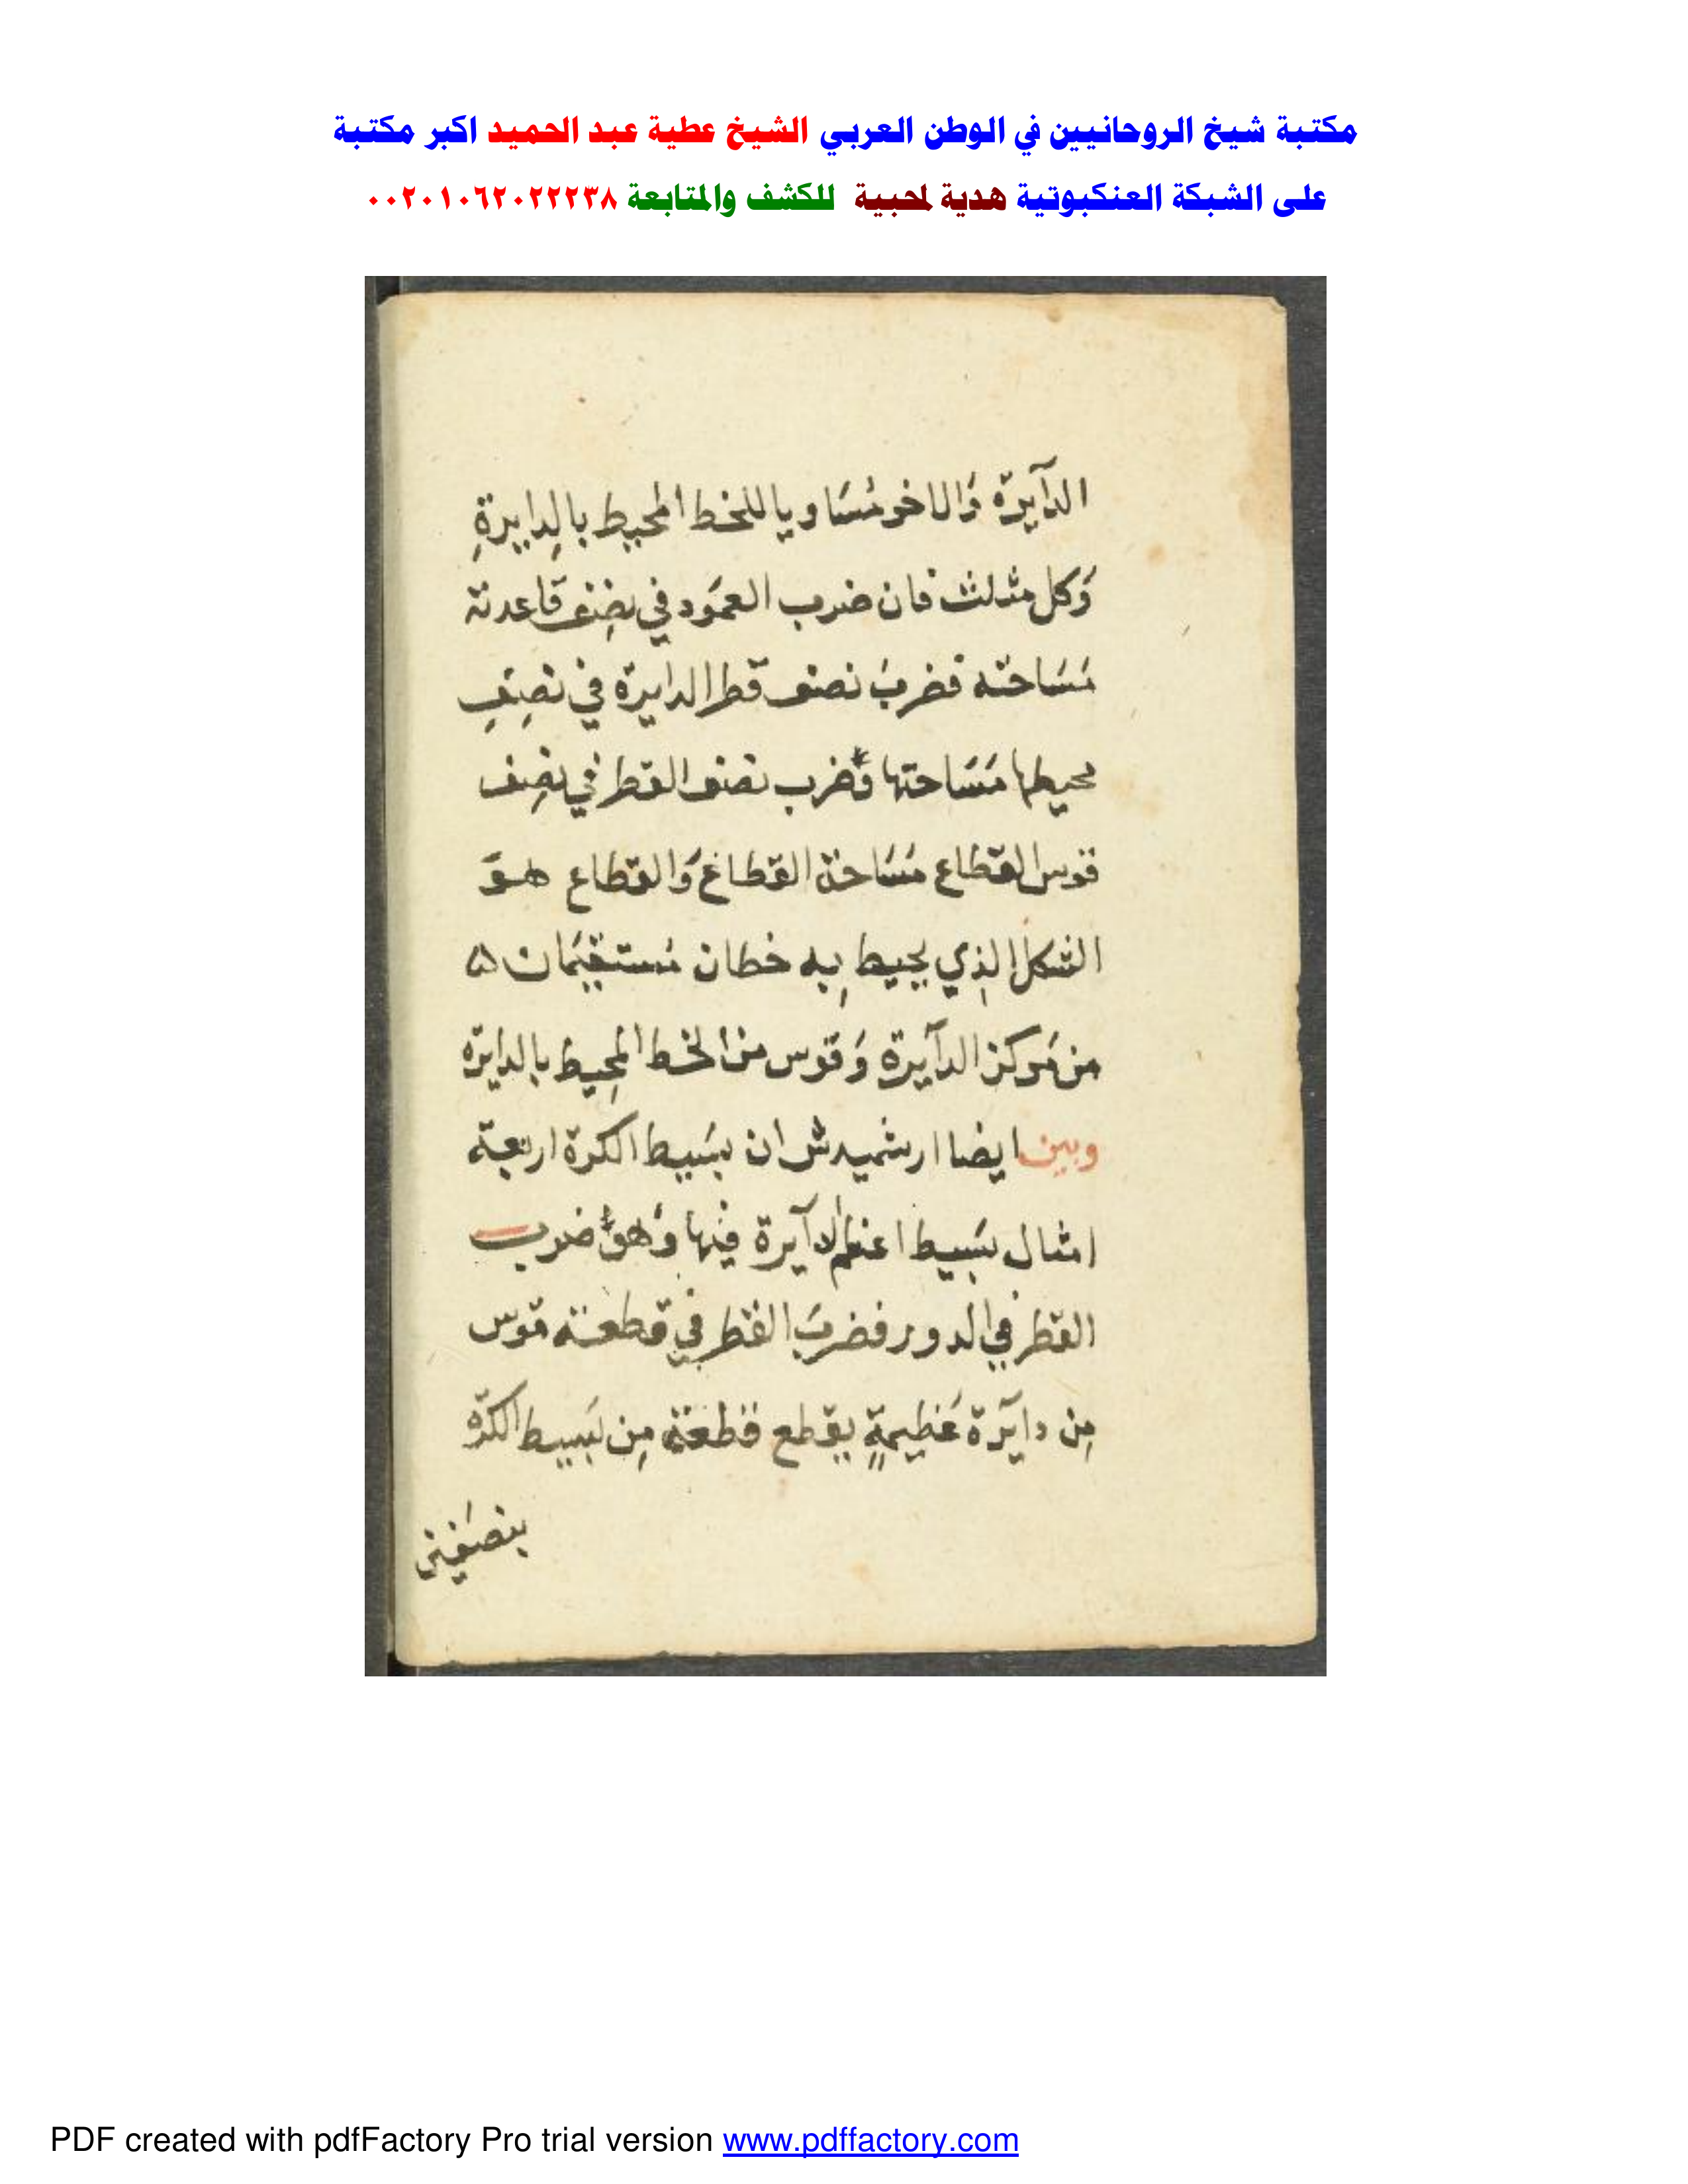 مكتبة شيخ الروحانيين في الوطن العربي الشيخ عطية عبد الحميد اكبر مكتبة
على الشبكة العنكبوتية هدية لمحبية للكشف والمتابعة ٠٠٢٠١٠٦٢٠٢٢٢٣٨
الدآيرة وَالاخر مُسَاويا للخط المحيط بالدِايرةِ
وَكل مثلث فان ضرب العمَود في نصِف قاعدته
مَسَاحته فضربُ نصف قطر الدايرة في نصِفِ
محيطها مَسَاحتها فضرب نصف القطر في نصِف
قوس القطاع مَسَاحة القطاع وَالقطاع هوَ
الشكل الذِي يحيط بِه خطان مُستقيمَان ه
من مَركز الدآيرة وَقوس من الخط المحِيط بالدايرة
وبين ايضا ارشميدش ان بسَيط الكرة اربعة
امثال بسَيط اعظم دآيرة فيها وَهوَ ضرب
القطر في الدور فضربُ القطر في قطعة قوس
مِن دايَرة عَظيمةٍ يقطع قطعة مِن بسَيط الكرة
بنصفين
PDF created with pdfFactory Pro trial version www.pdffactory.com